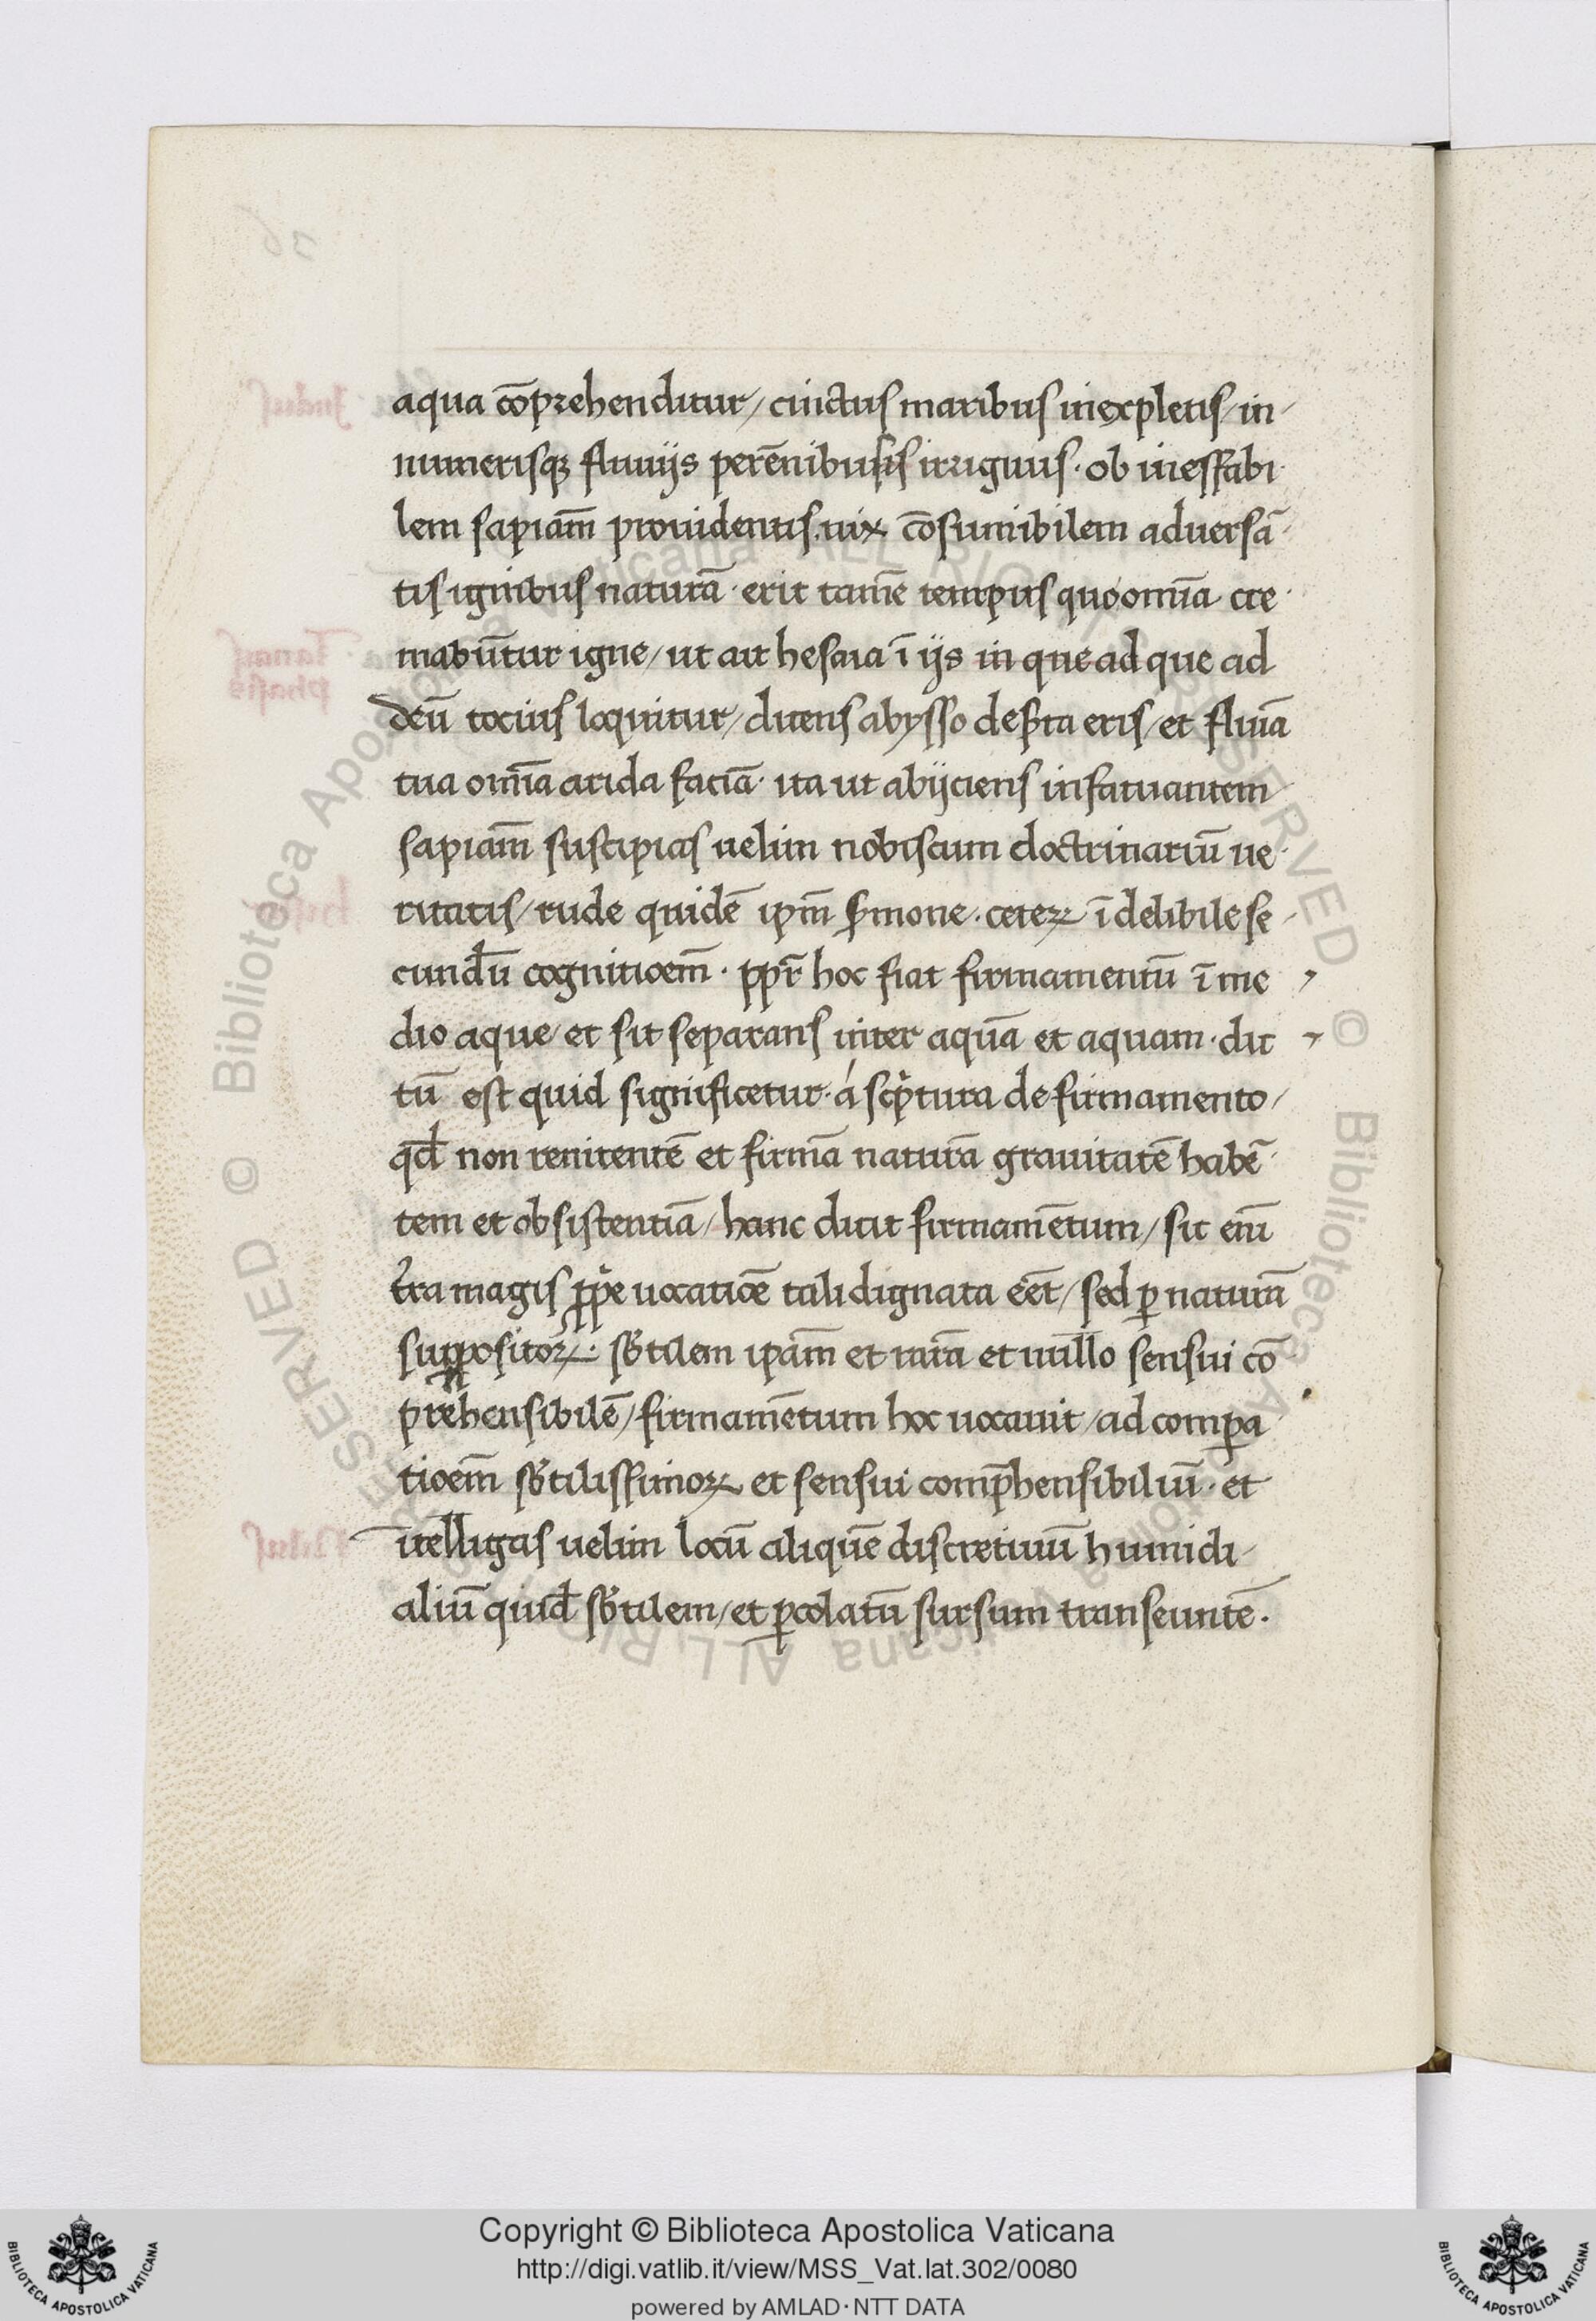 aqua cōprehenditur / cinctus maribus inexpletis / in-
numerisqȝ fluuijs perēnibusis irriguus · ob ineffabi
lem sapiam̄ prouidentis · uix cōsumibilem aduersā
tis ignibus naturā · erit tam̄e tempus quo om̄ia cre
mabūtur igne / ut ait hesaia ī ijs in que ad que ad
deū tocius loquitur / dicens abysso deserta eris / et fluīa
tua om̄ia arida faciā · ita ut abijciens infatuantem
sapiam̄ suscipias uelim nobiscum doctrinariū ue
ritatis / rude quidē ipm̄ smone · ceteꝝ īdelibile se
cundū cognitioem̄ · ppr̄ hoc fiat firmamentū ī me
dio aque / et sit separans inter aquā et aquam · dic
tū est quid significetur · á scptura de firmamento /
qd̄ non renitentē et firmā naturā grauitatē habē
tem et obsistentiā / hanc dicit firmamētum / sic enī
tra magis ppe uocatiōe tali dignata eēt / sed ꝑ naturā
suppositoꝝ · sbtilem ipam̄ et rarā et nullo sensui cō
prehensibilē / firmamētum hoc uocauit / ad compa
tioem̄ sbtilissimoꝝ et sensui comp̄hensibiliū · et
ītelligas uelim locū aliquē discretiuū humidi
aliū quid̄ sbtilem / et ꝑcolatū sursum transeuntē ·
Indus
Tanais
phasis
Nilus
Copyright © Biblioteca Apostolica Vaticana
http://digi.vatlib.it/view/MSS_Vat.lat.302/0080
powered by AMLAD · NTT DATA
BIBLIOTECA APOSTOLICA VATICANA
BIBLIOTECA APOSTOLICA VATICANA